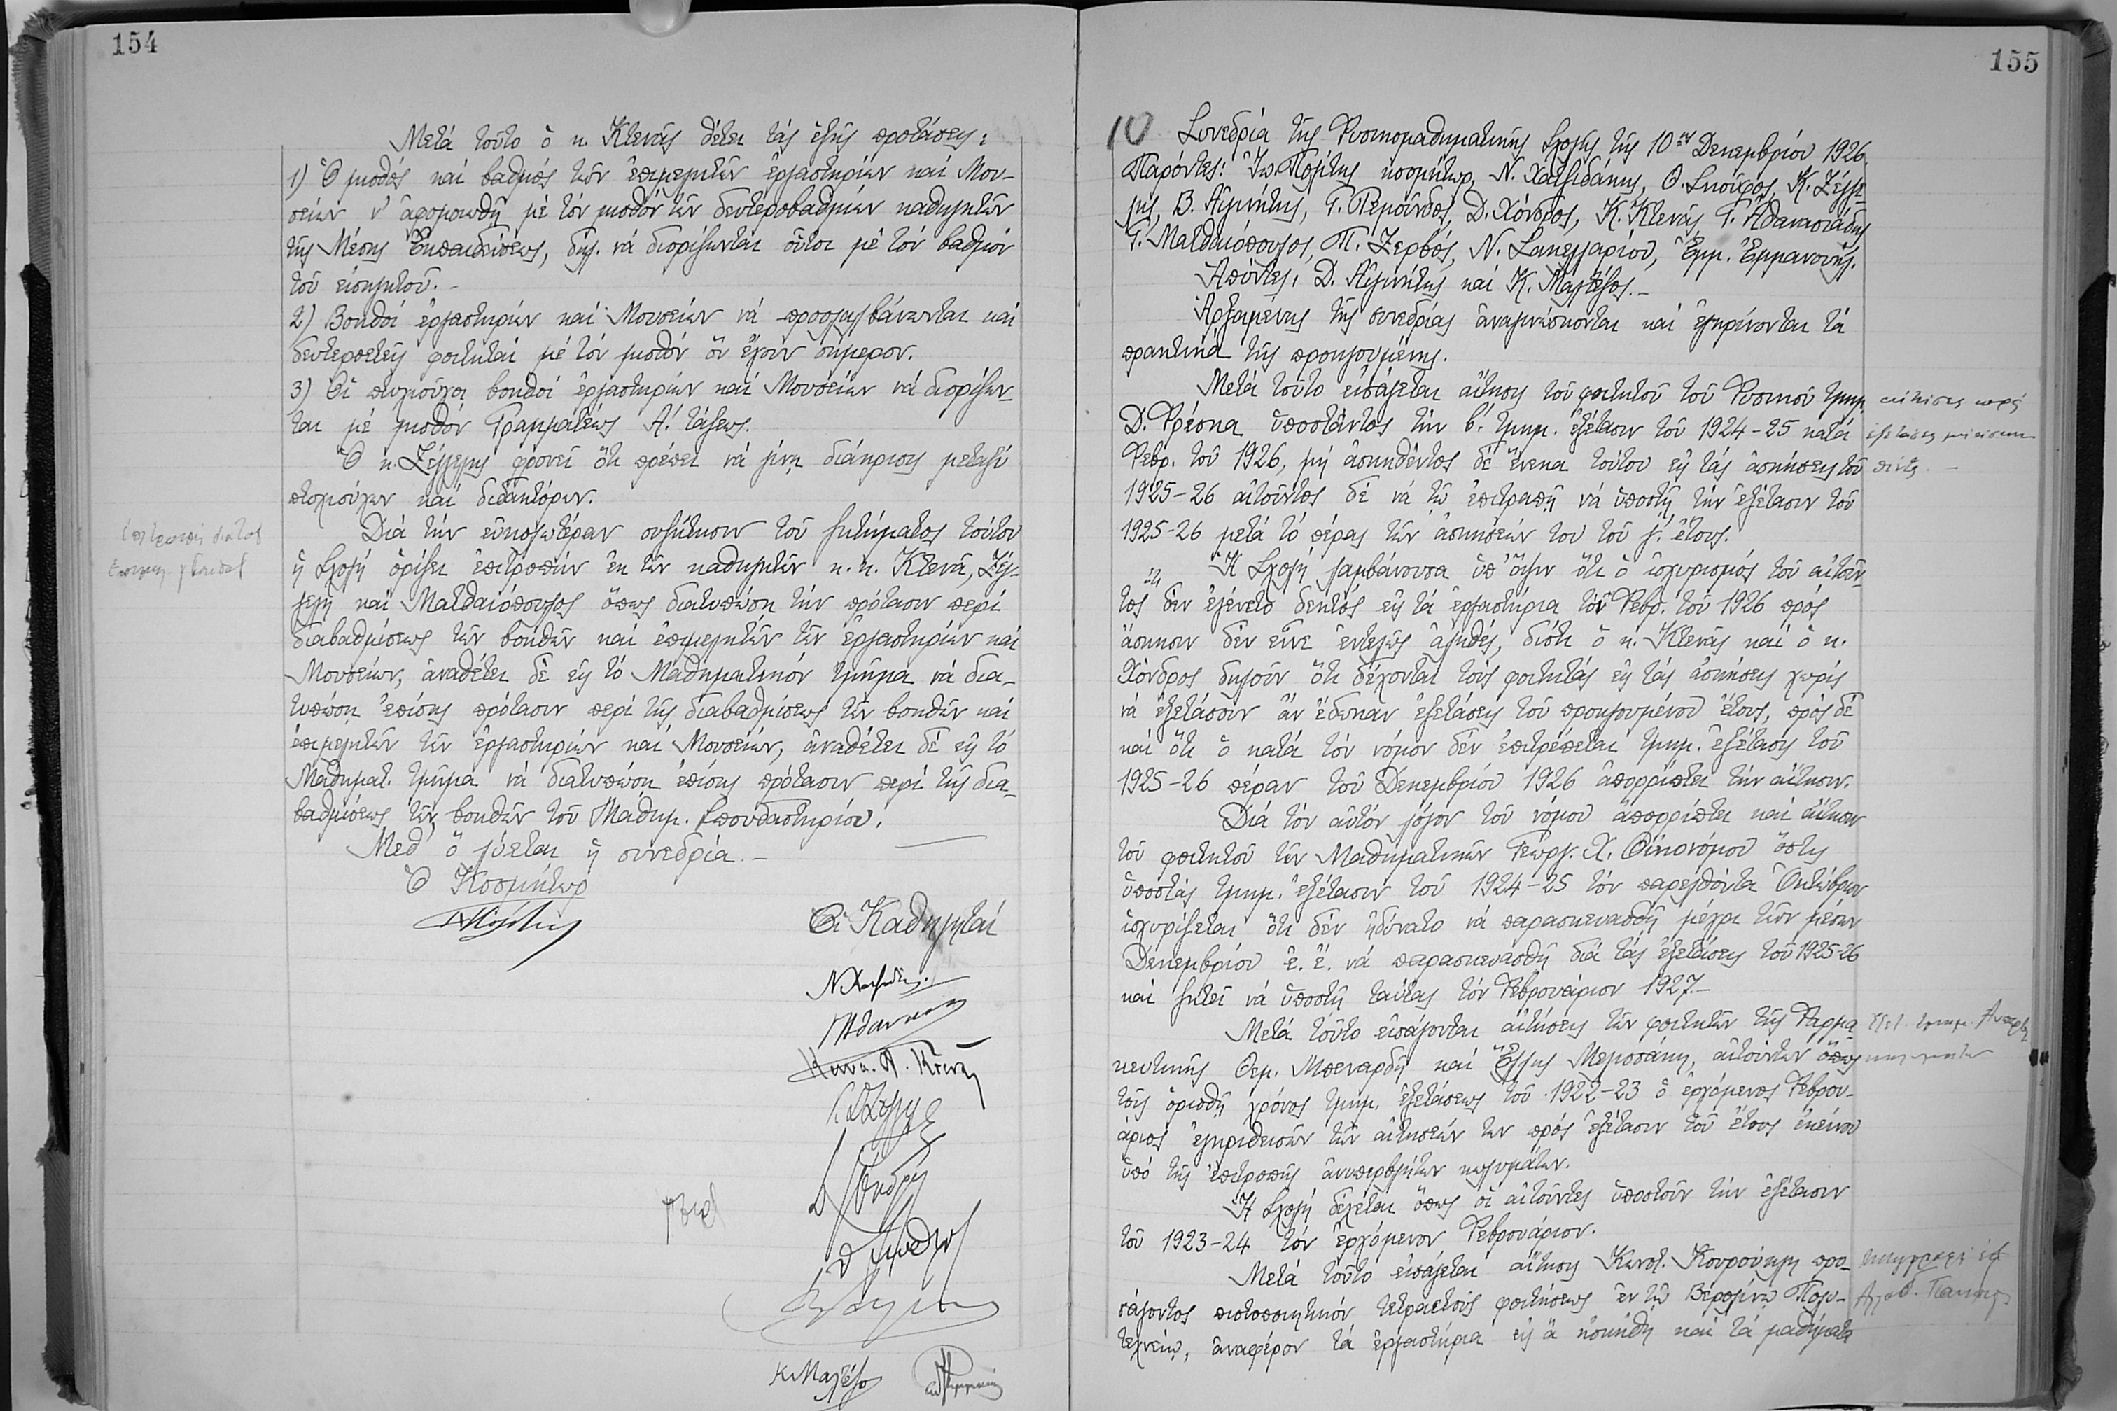 154
Μετά τοῦτο ὁ κ. Κτενᾶς θέτει τάς ἑξῆς προτάσεις:
1) Ὁ μισθός καί βαθμός τῶν ἐπιμελητῶν ἐργαστηρίων καί Μου-
σείων ν' ἀφομοιωθῇ μέ τόν μισθόν τῶν δευτεροβαθμίων καθηγητῶν
τῆς Μέσης Ἐκπαιδεύσεως, δηλ. νά διορίζωνται οὗτοι μέ τόν βαθμόν
τοῦ εἰσηγητοῦ.-
2) Βοηθοί ἐργαστηρίων καί Μουσείων νά προσλαμβάνωνται καί
δευτεροετεῖς φοιτηταί μέ τόν μισθόν ὅν ἔχουν σήμερον.
3) Οἱ πτυχιοῦχοι βοηθοί ἐργαστηρίων καί Μουσείων νά διορίζων-
ται μέ μισθόν Γραμματέως Α΄. τάξεως.
Ὁ κ. Ζέγγελης φρονεῖ ὅτι πρέπει νά γίνῃ διάκρισις μεταξύ
πτυχιούχων καί διδακτόρων.
Διά τήν εὐκολωτέραν συζήτησιν τοῦ ζητήματος τούτου
ἡ Σχολή ὁρίζει ἐπιτροπήν ἐκ τῶν καθηγητῶν κ.κ. Κτενᾶ, Ζέγ-
γελη καί Ματθαιόπουλος ὅπως διατυπώσῃ τήν πρότασιν περί
διαβαθμίσεως τῶν βοηθῶν καί ἐπιμελητῶν τῶν ἐργαστηρίων καί
Μουσείων, ἀναθέτει δέ εἰς τό Μαθηματικόν τμῆμα νά δια-
τυπώσῃ ἐπίσης πρότασιν περί τῆς διαβαθμίσεως τῶν βοηθῶν καί
ἐπιμελητῶν τῶν ἐργαστηρίων καί Μουσείων, ἀναθέτει δέ εἰς τό
Μαθηματ. τμῆμα νά διατυπώσῃ ἐπίσης πρότασιν περί τῆς δια-
βαθμίσεως τῶν βοηθῶν τοῦ Μαθημ. Σπουδαστηρίου.
Μεθ' ὅ λύεται ἡ συνεδρία.-
Ὁ Κοσμήτωρ
Οἱ Καθηγηταί
Κ. Μαλτέζος
155
10 Συνεδρία τῆς Φυσικομαθηματικῆς Σχολῆς τῆς 10ης Δεκεμβρίου 1926
Παρόντες: Ἰω. Πολίτης κοσμήτωρ, Ν. Χατζιδάκης, Θ. Σκοῦφος, Κ. Ζέγγε-
λης, Β. Αἰγινήτης, Γ. Ρεμοῦνδος, Δ. Χόνδρος, Κ. Κτενᾶς, Γ. Ἀθανασιάδης
Γ. Ματθαιόπουλος, Π. Ζερβός, Ν. Σακελλαρίου, Ἐμμ. Ἐμμανουήλ.
Ἀπόντες: Δ. Αἰγινήτης καί Κ. Μαλτέζος.-
Ἀρξαμένης τῆς συνεδρίας ἀναγινώσκονται καί ἐγκρίνονται τά
πρακτικά τῆς προηγουμένης.
Μετά τοῦτο εἰσάγεται αἴτησις τοῦ φοιτητοῦ τοῦ Φυσικοῦ τμήμ.
Δ. Φρέσκα ὑποστάντος τήν β΄. τμημ. ἐξέτασιν τοῦ 1924-25 κατά
Φεβρ. τοῦ 1926, μή ἀσκηθέντος δέ ἕνεκα τούτου εἰς τάς ἀσκήσεις τοῦ
1925-26 αἰτοῦντος δέ νά τῷ ἐπιτραπῇ νά ὑποστῇ τήν ἐξέτασιν τοῦ
1925-26 μετά τό πέρας τῶν ἀσκήσεών του τοῦ γ΄. ἔτους.
Ἡ Σχολή λαμβάνουσα ὑπ' ὄψιν ὅτι ὁ ἰσχυρισμός τοῦ αἰτοῦν-
τος ὅτι δέν ἐγένετο δεκτός εἰς τά ἐργαστήρια τόν Φεβρ. τοῦ 1926 πρός
ἄσκησιν δέν εἶνε ἐντελῶς ἀληθές, διότι ὁ κ. Κτενᾶς καί ὁ κ.
Χόνδρος δηλοῦν ὅτι δέχονται τούς φοιτητάς εἰς τάς ἀσκήσεις χωρίς
νά ἐξετάσουν ἄν ἔδωκαν ἐξετάσεις τοῦ προηγουμένου ἔτους, πρός δέ
καί ὅτι ὁ κατά τόν νόμον δέν ἐπιτρέπεται τμημ. ἐξέτασις τοῦ
1925-26 πέραν τοῦ Δεκεμβρίου 1926 ἀπορρίπτει τήν αἴτησιν.
Διά τόν αὐτόν λόγον τοῦ νόμου ἀπορρίπτει καί αἴτησιν
τοῦ φοιτητοῦ τῶν Μαθηματικῶν Γεωργ. Χ. Οἰκονόμου ὅστις
ὑποστάς τμημ. ἐξέτασιν τοῦ 1924-25 τόν παρελθόντα Ὀκτώβριον
ἰσχυρίζεται ὅτι δέν ἠδύνατο νά παρασκευασθῇ μέχρι τῶν μέσων
Δεκεμβρίου ἐ. ἔ. νά παρασκευασθῇ διά τάς ἐξετάσεις τοῦ 1925-26
καί ζητεῖ νά ὑποστῇ ταύτας τόν Φεβρουάριον 1927.-
Μετά τοῦτο εἰσάγονται αἰτήσεις τῶν φοιτητῶν τῆς Φαρμα-
κευτικῆς Θεμ. Μπεναρδῆ καί Ἕλλης Μελισσάκη, αἰτούντων ὅπως
τοῖς ὁρισθῇ χρόνος τμημ. ἐξετάσεως τοῦ 1922-23 ὁ ἐρχόμενος Φεβρου-
άριος ἐγκριθεισῶν τῶν αἰτήσεών των πρός ἐξέτασιν τοῦ ἔτους ἐκείνου
ὑπό τῆς ἐπιτροπῆς ἀνυπερβλήτων κωλυμάτων.
Ἡ Σχολή δέχεται ὅπως οἱ αἰτοῦντες ὑποστοῦν τήν ἐξέτασιν
τοῦ 1923-24 τόν ἐρχόμενον Φεβρουάριον.
Μετά τοῦτο εἰσάγεται αἴτησις Κωνστ. Κουρούκλη προ-
σάγοντος πιστοποιητικόν τετραετοῦς φοιτήσεως ἐν τῷ Βερολίνῳ Πολυ-
τεχνείῳ, ἀναφέρον τά ἐργαστήρια εἰς ἅ ἠσκήθη καί τά μαθήματα